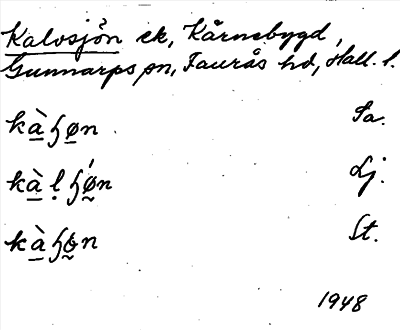 Kalvsjön ek, Kärnebygd,
Gunnarps sn, Faurås hd, Hall. l.
kàɧøn Sa.
kàḷɧǿn Lj.
kàɧøn St.
1948